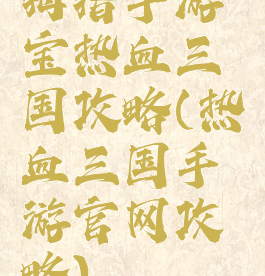 拇指手游
宝热血三
国攻略(热
血三国手
游官网攻
略)